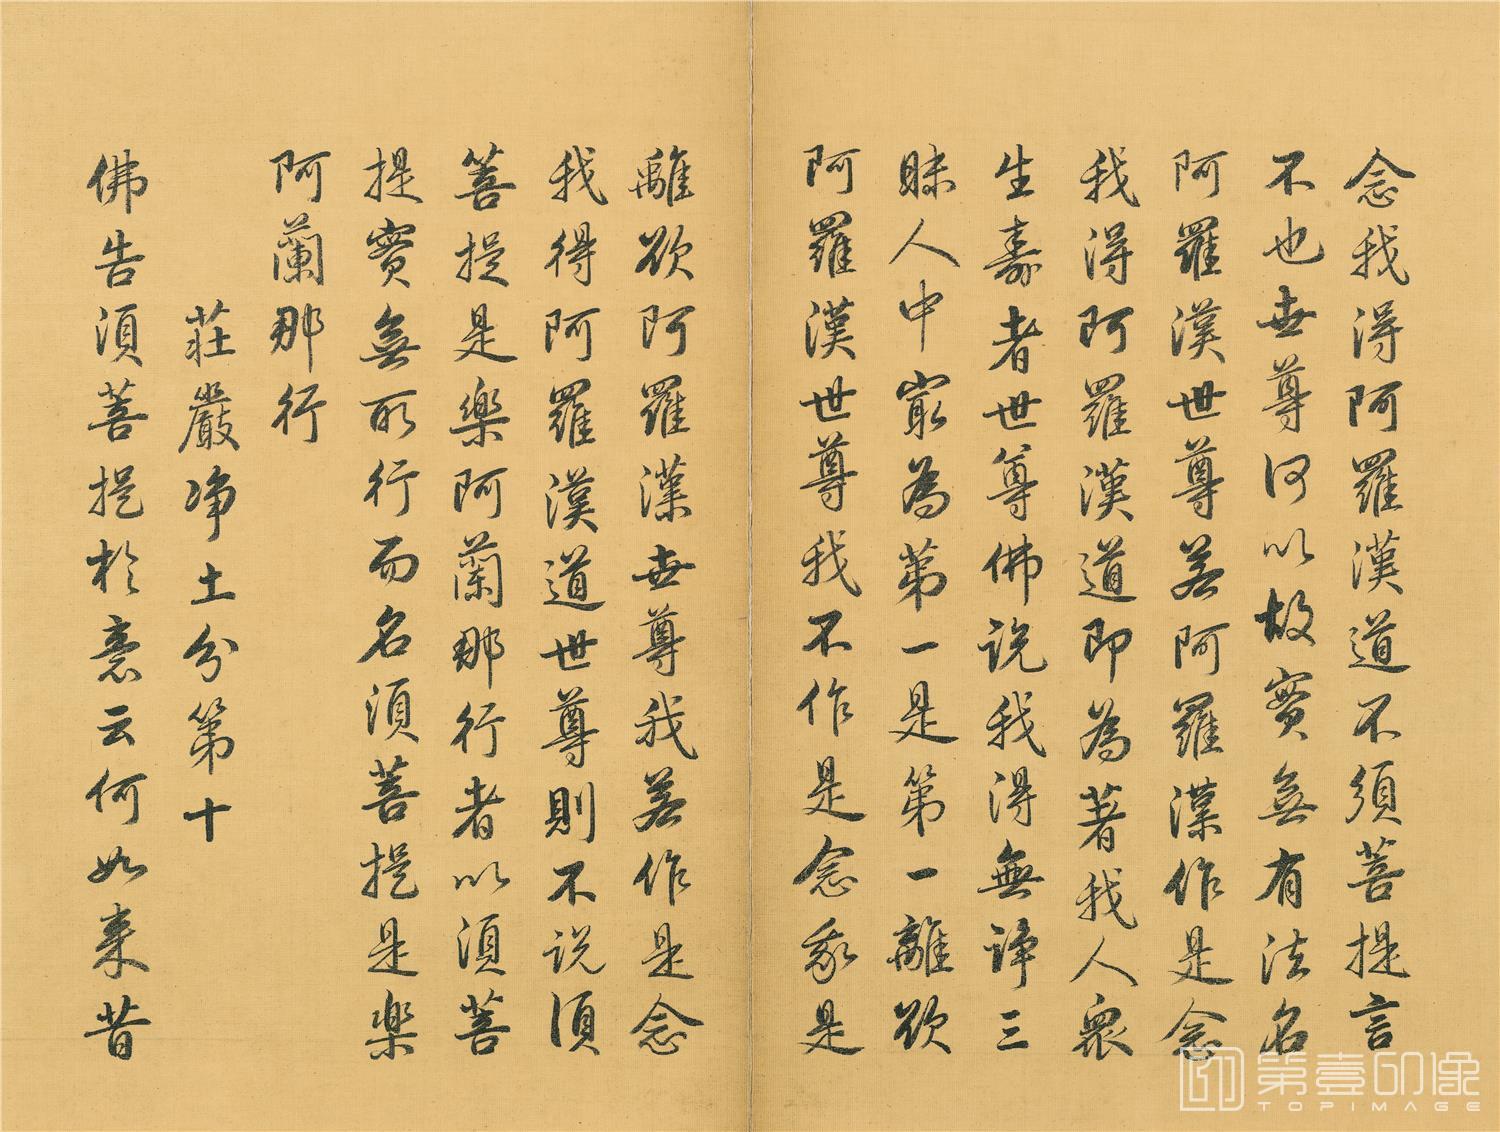 念我得阿羅漢道不須菩提言
不也世尊何以故實無有法名
阿羅漢世尊若阿羅漢作是念
我得阿羅漢道即為著我人衆
生壽者世尊佛說我得無諍三
昧人中㝡為第一是第一離欲
阿羅漢世尊我不作是念我是
離欲阿羅漢世尊我若作是念
我得阿羅漢道世尊則不說須
菩提是樂阿蘭那行者以須菩
提實無所行而名須菩提是樂
阿蘭那行
莊嚴淨土分第十
佛告須菩提於意云何如来昔
第壹印像
TOPIMAGE